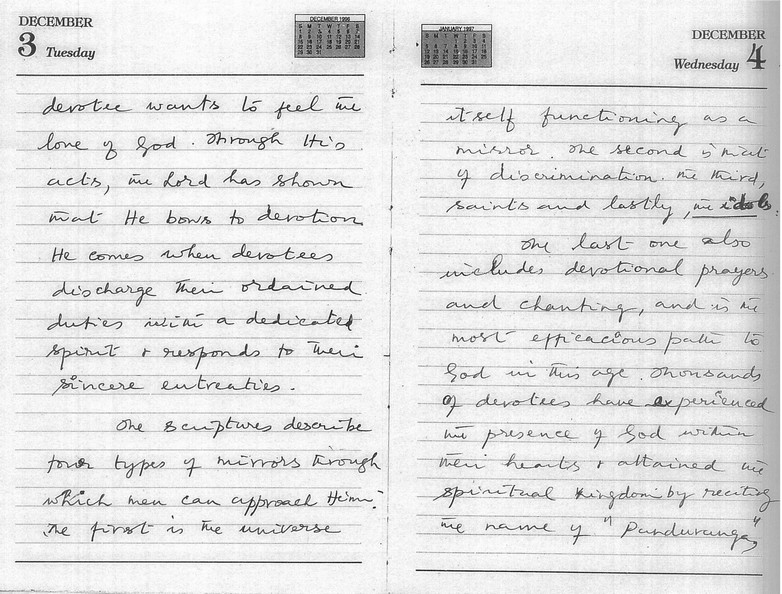 DECEMBER
3 Tuesday
DECEMBER 1996
devotee wants to feel the
love of God. Through His
acts, the Lord has shown
that He bows to devotion
He comes when devotees
discharge their ordained
duties with a dedicated
spirit + responds to their
sincere entreaties.
The scriptures describe
four types of mirrors through
which men can approach Him:
The first is the universe
JANUARY 1997
DECEMBER
Wednesday 4
itself functioning as a
mirror. The second is that
of discrimination. The third,
saints and lastly, the idols.
The last one also
includes devotional prayers
and chanting, and is the
most efficacious path to
God in this age. Thousands
of devotees have experienced
the presence of God within
their hearts + attained the
spiritual kingdom by reciting
the name of "Panduranga"